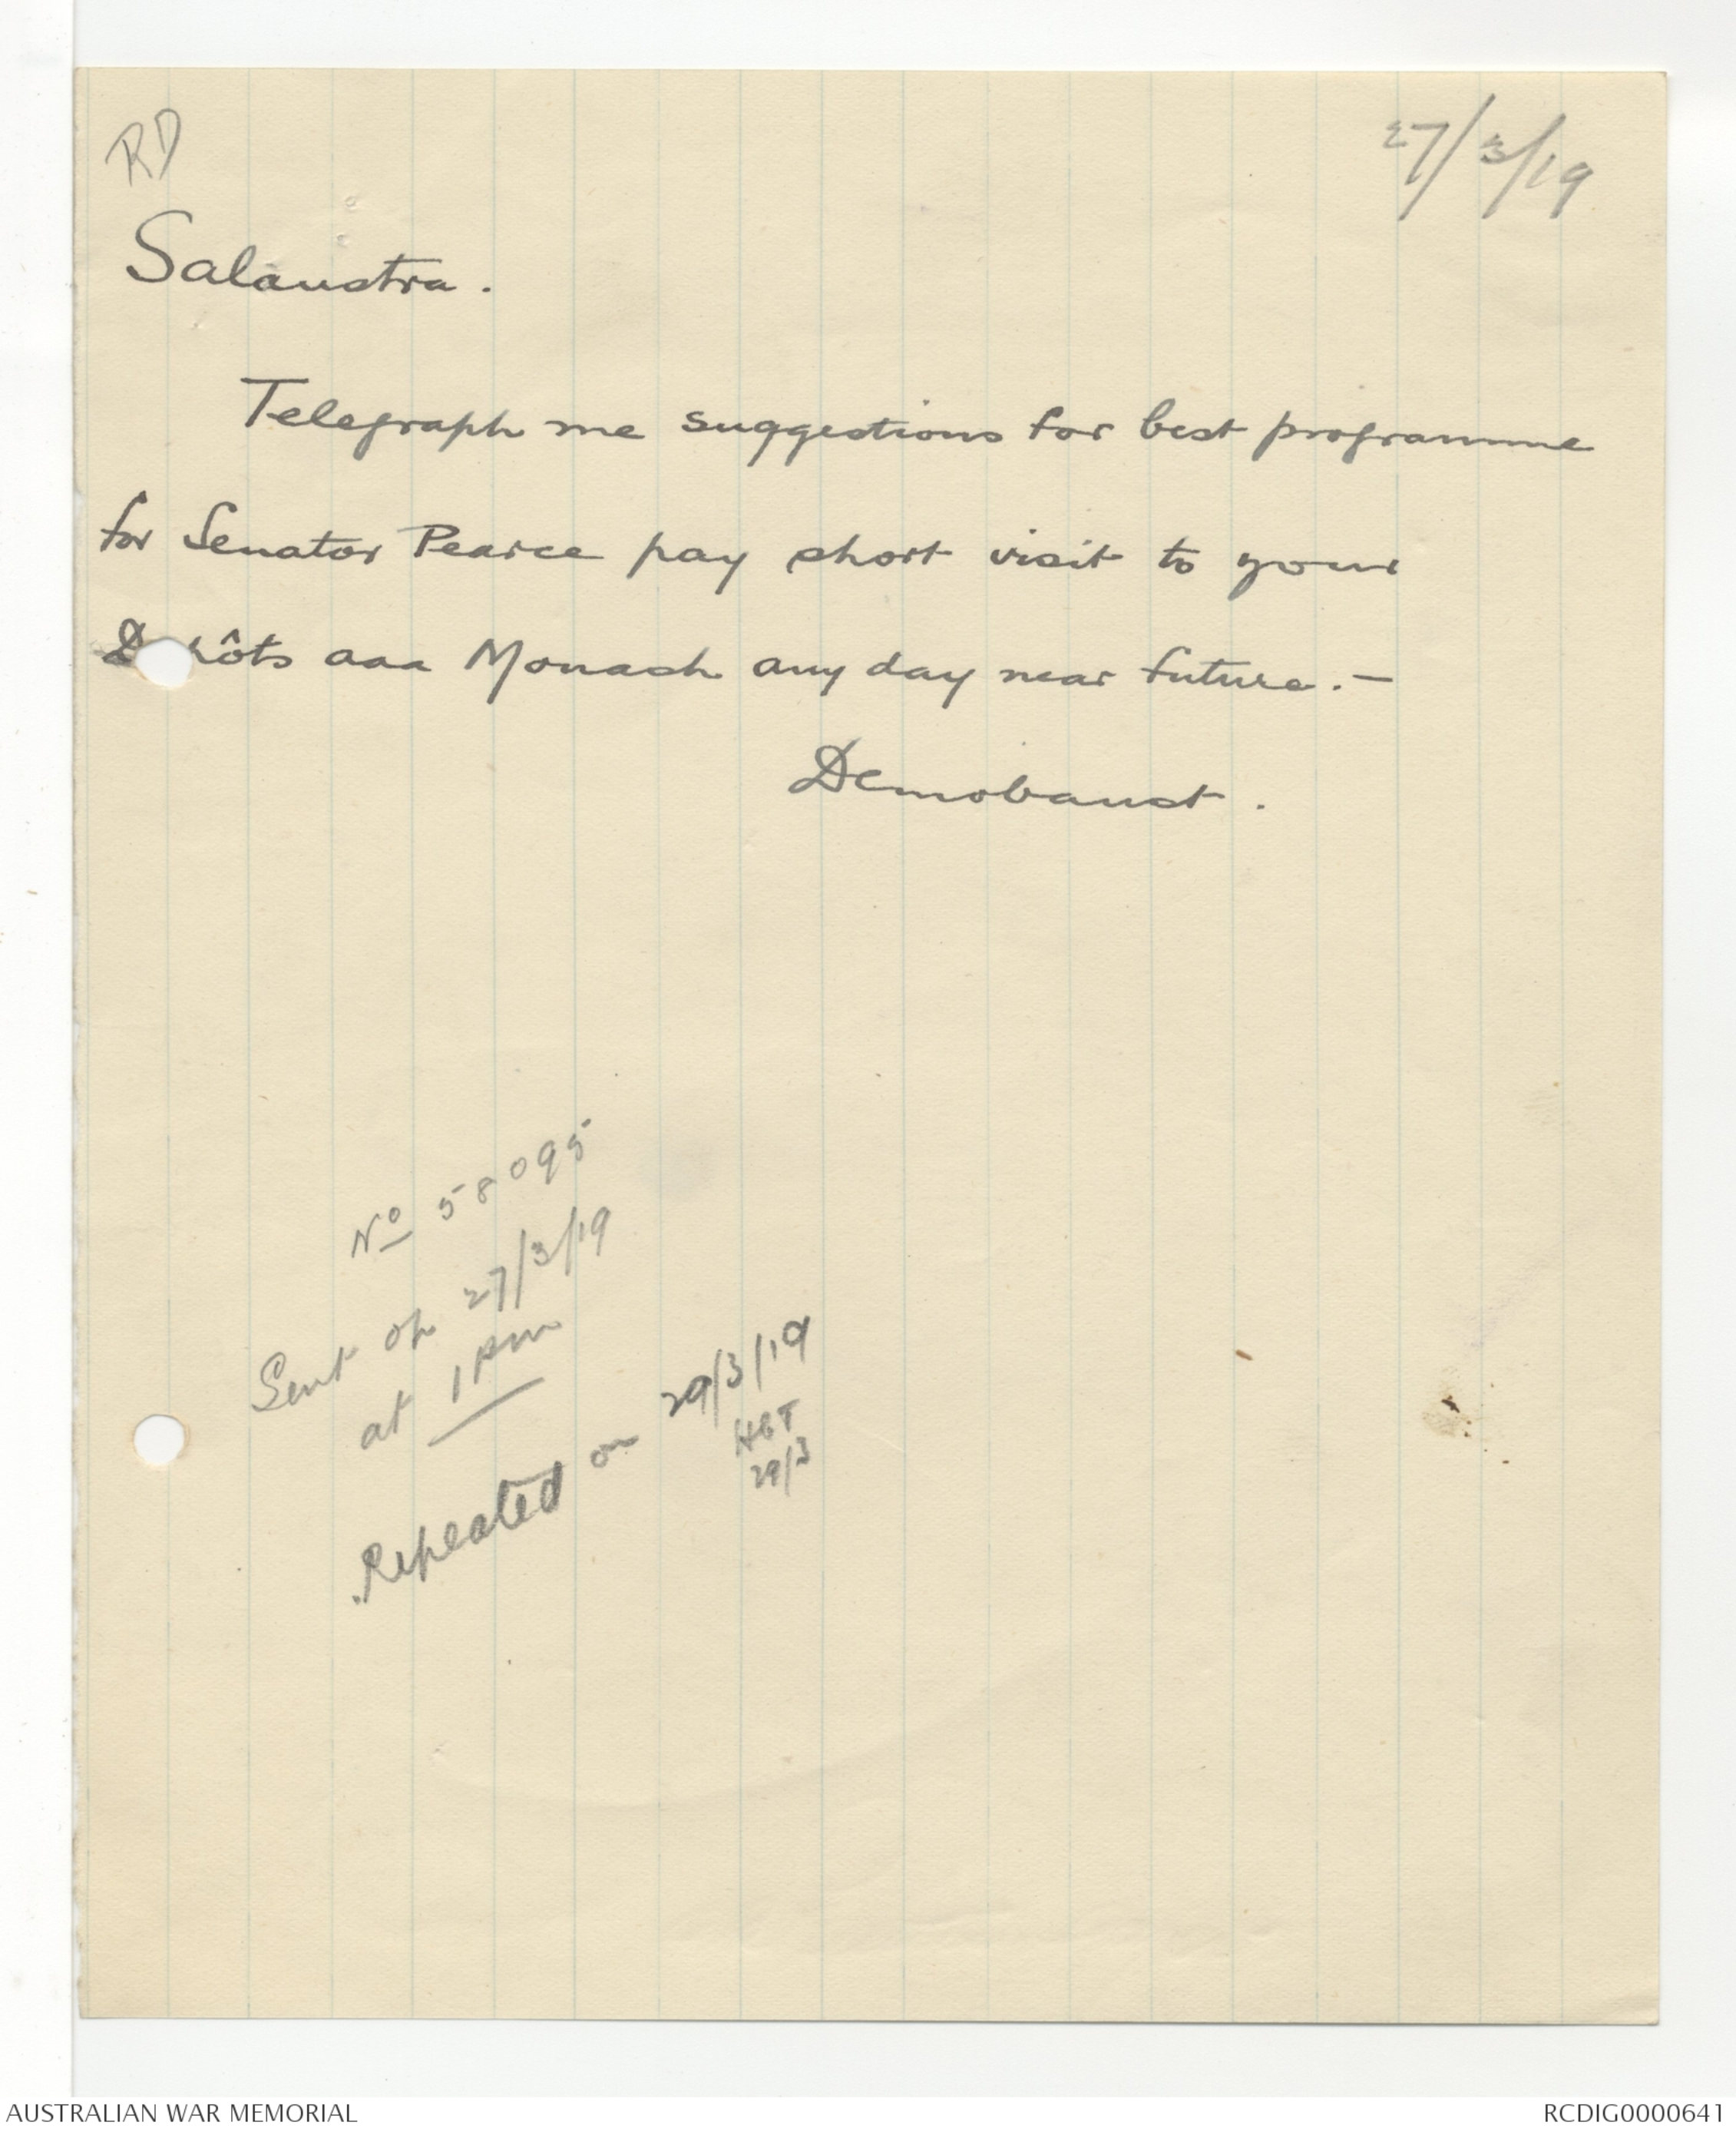 RD
27/3/19
Salaustra.
Telegraph me suggestions for best programme
for Senator Pearce pay short visit to your
Depôts aaa Monash any day near future.—
Demobaust.
Nº 58095
Sent on 27/3/19
at 1 pm
Repeated on 29/3/19
HBT
29/3
AUSTRALIAN WAR MEMORIAL
RCDIG0000641